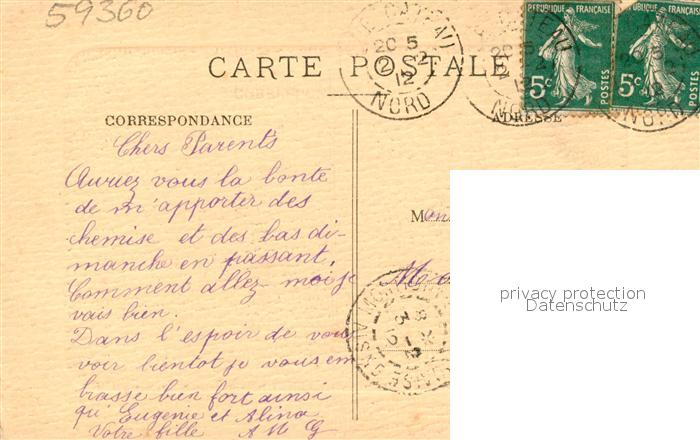 59360
LE CATEAU
20 5
2-2
12
NORD
REPUBLIQUE FRANÇAISE
5c
POSTES
REPUBLIQUE FRANÇAISE
5c
POSTES
CARTE POSTALE
CORRESPONDANCE
ADRESSE
Chers Parents
Auriez vous la bonté
de m'apporter des
chemise et des bas di-
manche en passant.
Comment allez-moi je
vais bien.
Dans l'espoir de vous
voir bientot je vous em
brasse bien fort ainsi
qu'Eugenie et Alina
Votre fille A M G
M
privacy protection
Datenschutz